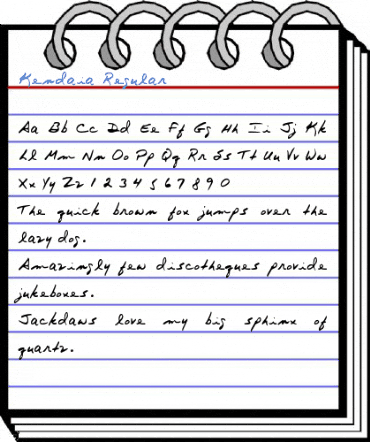 Kendaia Regular
Aa Bb Cc Dd Ee Ff Gg Hh Ii Jj Kk
Ll Mm Nn Oo Pp Qq Rr Ss Tt Uu Vv Ww
Xx Yy Zz 1 2 3 4 5 6 7 8 9 0
The quick brown fox jumps over the
lazy dog.
Amazingly few discotheques provide
jukeboxes.
Jackdaws love my big sphinx of
quartz.